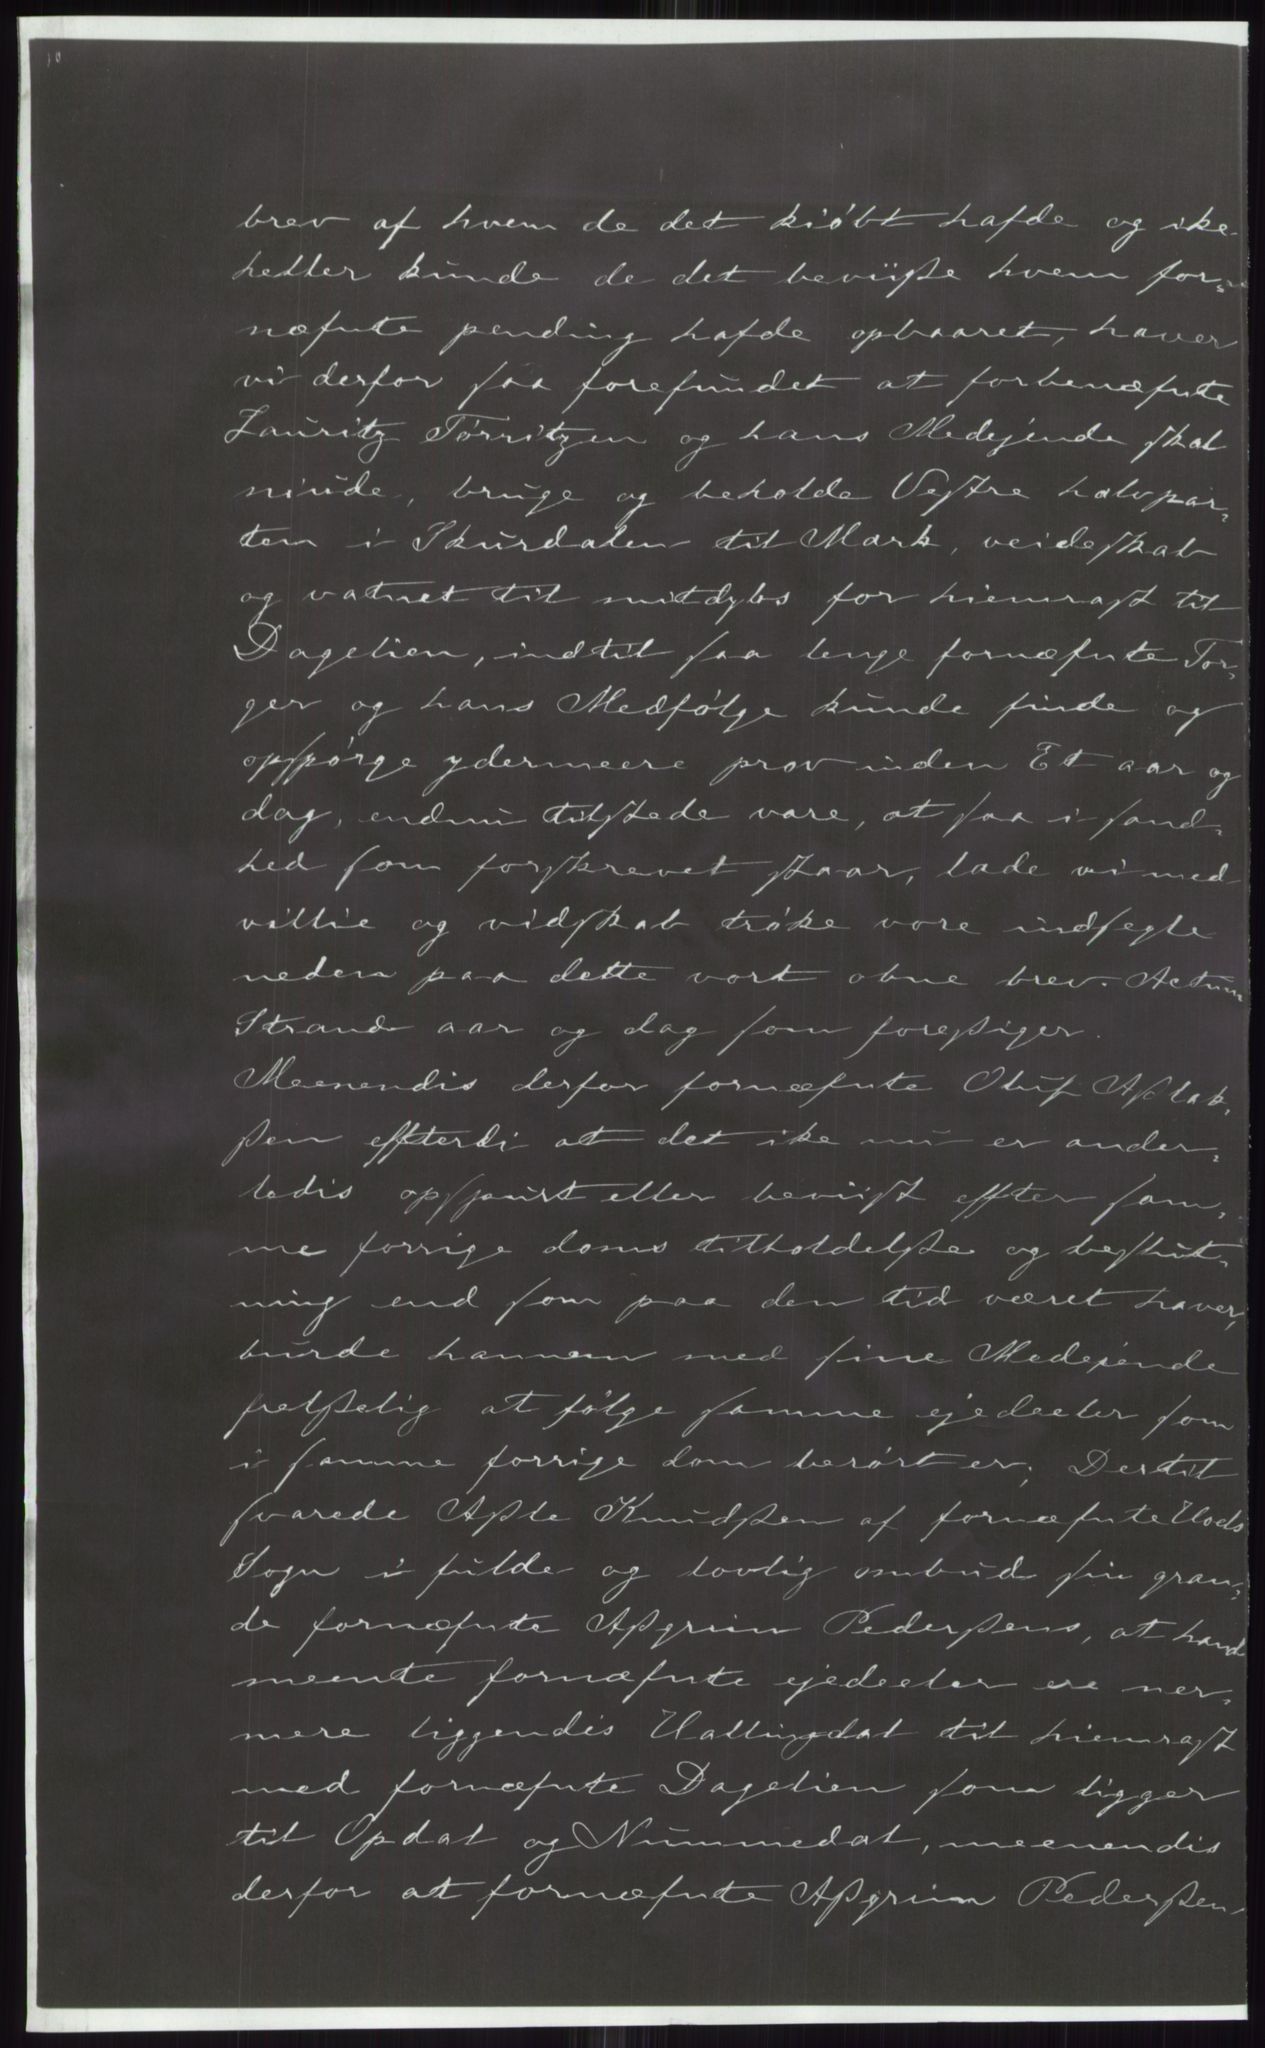 brev af hvem de det kiöbt hafde og ike
heller kunde de det beviisse hvem for-
næfnte pending hafde opbaaret, haver
vi derfor saa forefundet at forbenæfnte
Lauritz Törritzen og hans Medejende skal
niude, bruge og beholde Vestre halvpar-
ten i Skurdalen til Mark, veideskab
og vatnet til mitdybs for hiemrast til
Dagelien, indtil saa lenge fornæfnte Tor-
ger og hans Medfölge kunde finde og
opspörge ydermeere prov inden Et aar og
dag, endnu tilstede vare, at saa i sand-
hed som forskrevet staar, lade vi med
villie og vidskab tröke vore indsegle
neden paa dette vort obne brev. Actum
Strand aar og dag som foresiger.
Meenendis derfor fornæfnte Oluf Asslak-
ssen effterdi at det ike nu er ander-
ledis opspurt eller beviist effter sam-
me forrige doms tilholdelsse og beslut-
ning end som paa den tid været haver,
burde hannem med sine Medejende
frelsselig at fölge samme ejedeeler som
i samme forrige dom berört er; Dertil
svarede Assle Knudssen af fornæfnte Hols
Sogn i fulde og lovlig ombud sin gran-
de fornæfnte Assgrim Pederssens, at hand
meente fornæfnte ejedeeler ere ner-
mere liggendis Hallingdal til hiemrast
med fornæfnte Dagelien som ligger
til Opdal og Nummedal, meenendis
derfor at fornæfnte Assgrim Pederssen